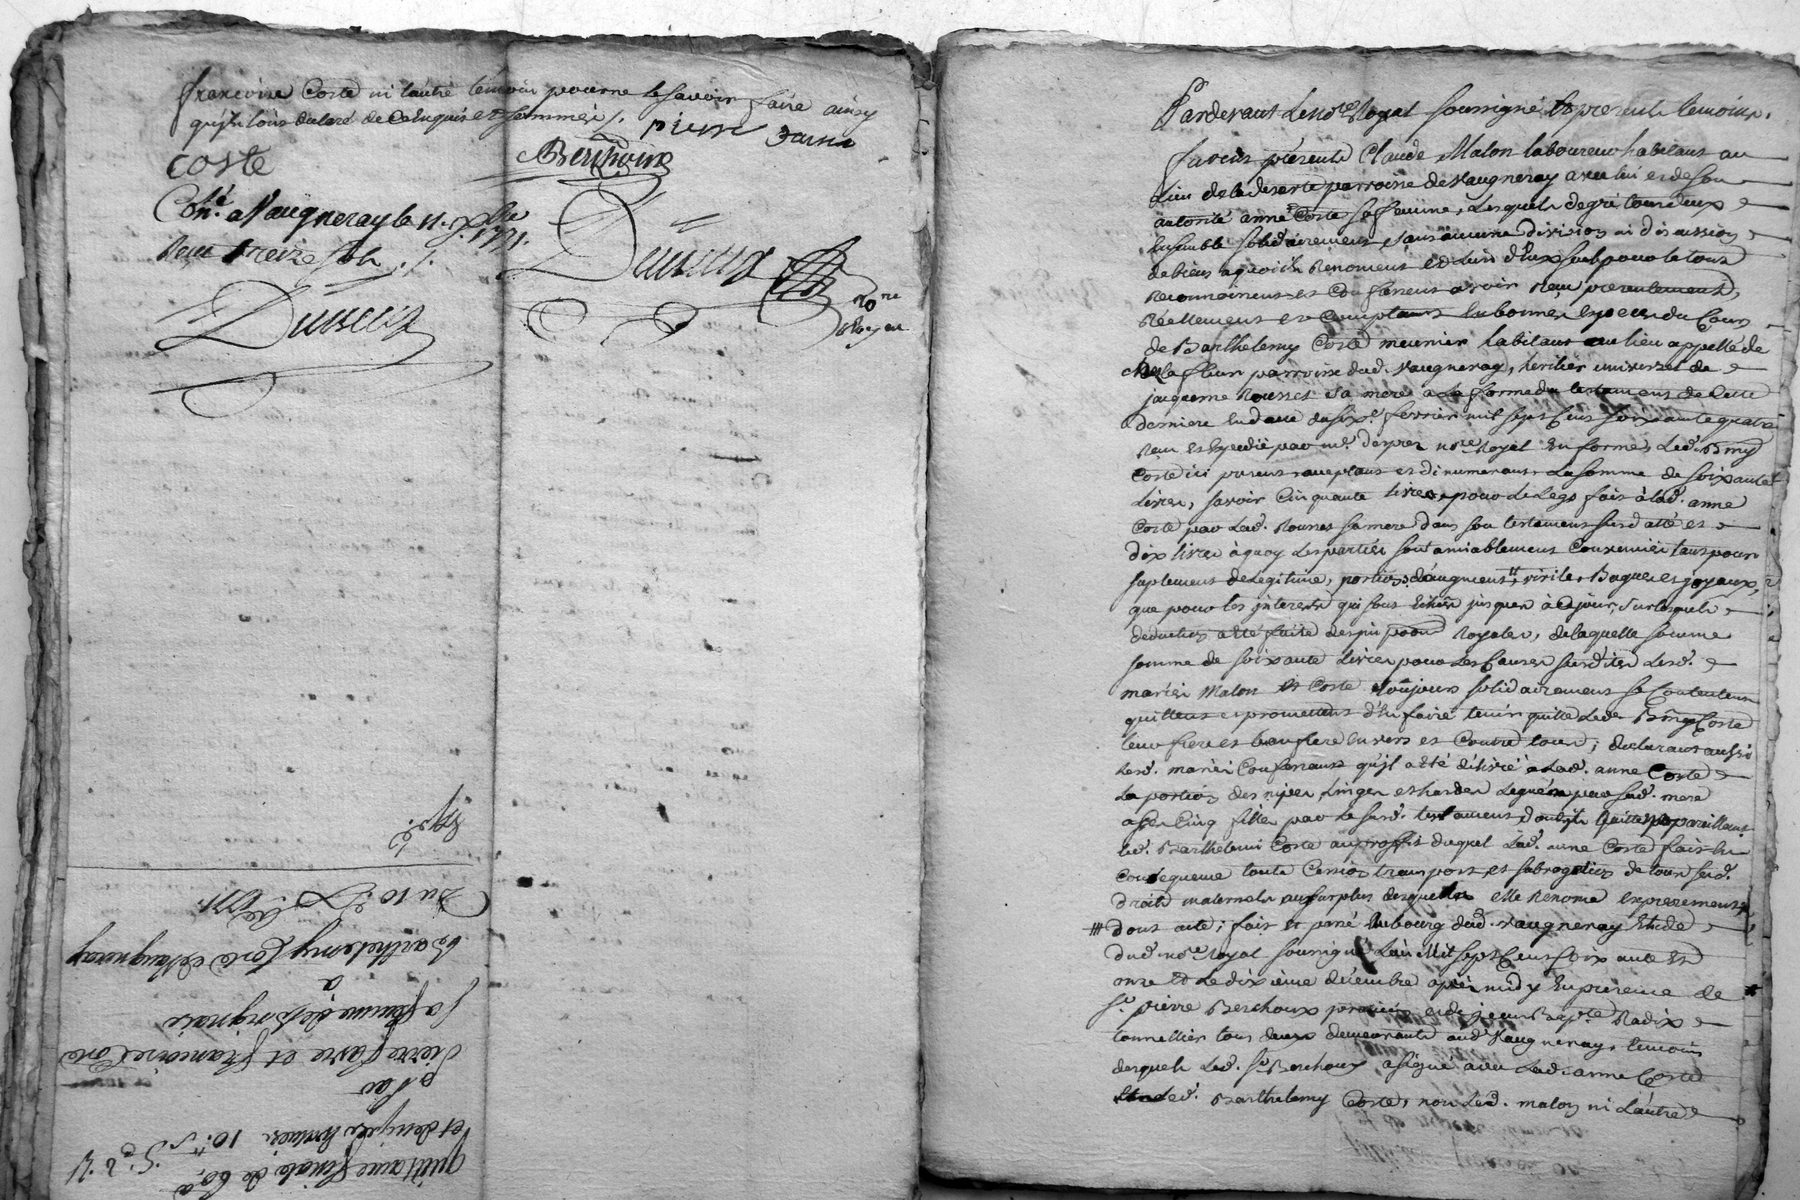 françoise Coste ni lautre témoin pour ne le savoir faire ainsy
qu'ils l'ont déclaré de ce enquis et sommés /. pierre favre
COSTE
Berchoux
Con.lé a Vaugneray le 11. Xbre 1771.
Reçu treize sols ./.
Duvieux
Duvieux
No.re
Royal
Expé.
Du 10.e Xbre 1771.
Quittance finale de 60.ll
et denujés Evaluer 10.ll
par
Pierre favre et françoise Coste
sa femme de
a
Barthelemy Coste de Vaugneray
Pardevant Le no.re Royal soussigné Et present temoins.
furent présents Claude Malon laboureur habitant au
lieu de la deserte parroisse de Vaugneray avec lui et de son
autorité anne Coste sa femme, Lesquels de gré tous deux
Ensemble solidairement, sans aucune division ni discussion
de biens a quoi ils Renoncent et L'un d'Eux seul pour le tout
Reconnoissent et Confessent avoir Reçu presentement,
Réellement et Comptant En bonnes Especes du Cours
de Barthelemy Coste meunier habitant au lieu appellé de
chez la fleur parroisse dud. Vaugneray, heritier universel de
jacqueme Rousset sa mere a la forme du testament de Cette
derniere En datte du six.e fevrier mil sept Cent soixante quatre
Reçu et Expedié par m.e despres no.re Royal En forme, Led. B.my
Coste ici present acceptant et dinumerant La somme de soixante
Livres, savoir Cinquante livres pour Le Legs fait à lad. anne
Coste par Lad. Rousset sa mere dans son testament susdatté et
dix livres à quoy Les parties sont amiablement Convenües tant pour
suplement de Legitime, portion d'augment, virile, Bagues et joyaux,
que pour les jnterets qui sont Echus jusques à Ce jour, sur lesquels
deduction a été faite des jmpoõns Royales, de laquelle somme
somme de soixante Livres pour Les Causes susdites Lesd.
mariés Malon et Coste toujours solidairement se Contentent
quittent et promettent d'En faire tenir quitte Led. B.my Coste
leur frere et beaufrere Envers et Contre tous; declarant aussi
Lesd. mariés Confessant qu'jl a été délivré a Lad. anne Coste
La portion des nipes, Linges et hardes Légués par sad. mere
a ses Cinq filles par Le susd. testament, dont jls quittent pareillement
led. Barthelemi Coste au proffit duquel Lad. anne Coste fait En
Consequence toute Cession transport et subrogation de tous sesd.
droits maternels au surplus desquels elle Renonce expressement
dont acte; fait et passé Au bourg dud. Vaugneray Etude
dud. no.re Royal soussigné L'an Mil sept Cent soixante et
onze Et Le dixième décembre après midy En presence de
s.r pierre Berchoux praticien et de jean Bap.te Radix
tonnellier tous deux demeurants aud. Vaugneray, temoins
desquels Led. s.r Berchoux a signé avec Lad. anne Coste
Led. Barthelemy Coste, non Led. malon ni L'autre